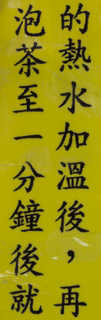 的熱水加溫後，再
泡茶至一分鐘後就